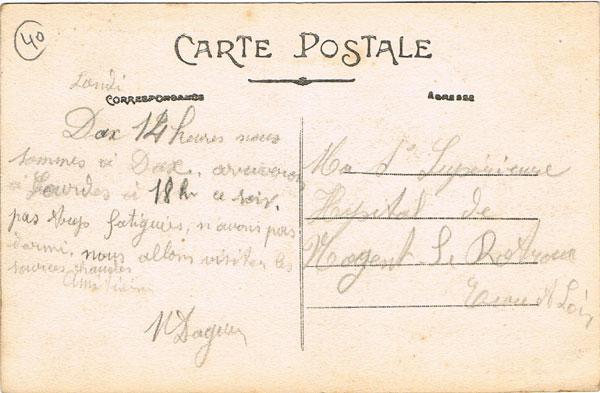 40
CARTE POSTALE
Lundi
CORRESPONDANCE
ADRESSE
Dax 14 heures nous
sommes à Dax, arriverons
à Lourdes à 18h ce soir.
pas trop fatiguées, n'avons pas
dormi, nous allons visiter les
sources chaudes
Ma Sr Supérieure
Hôpital de
Nogent-le-Rotrou
Eure & Loir